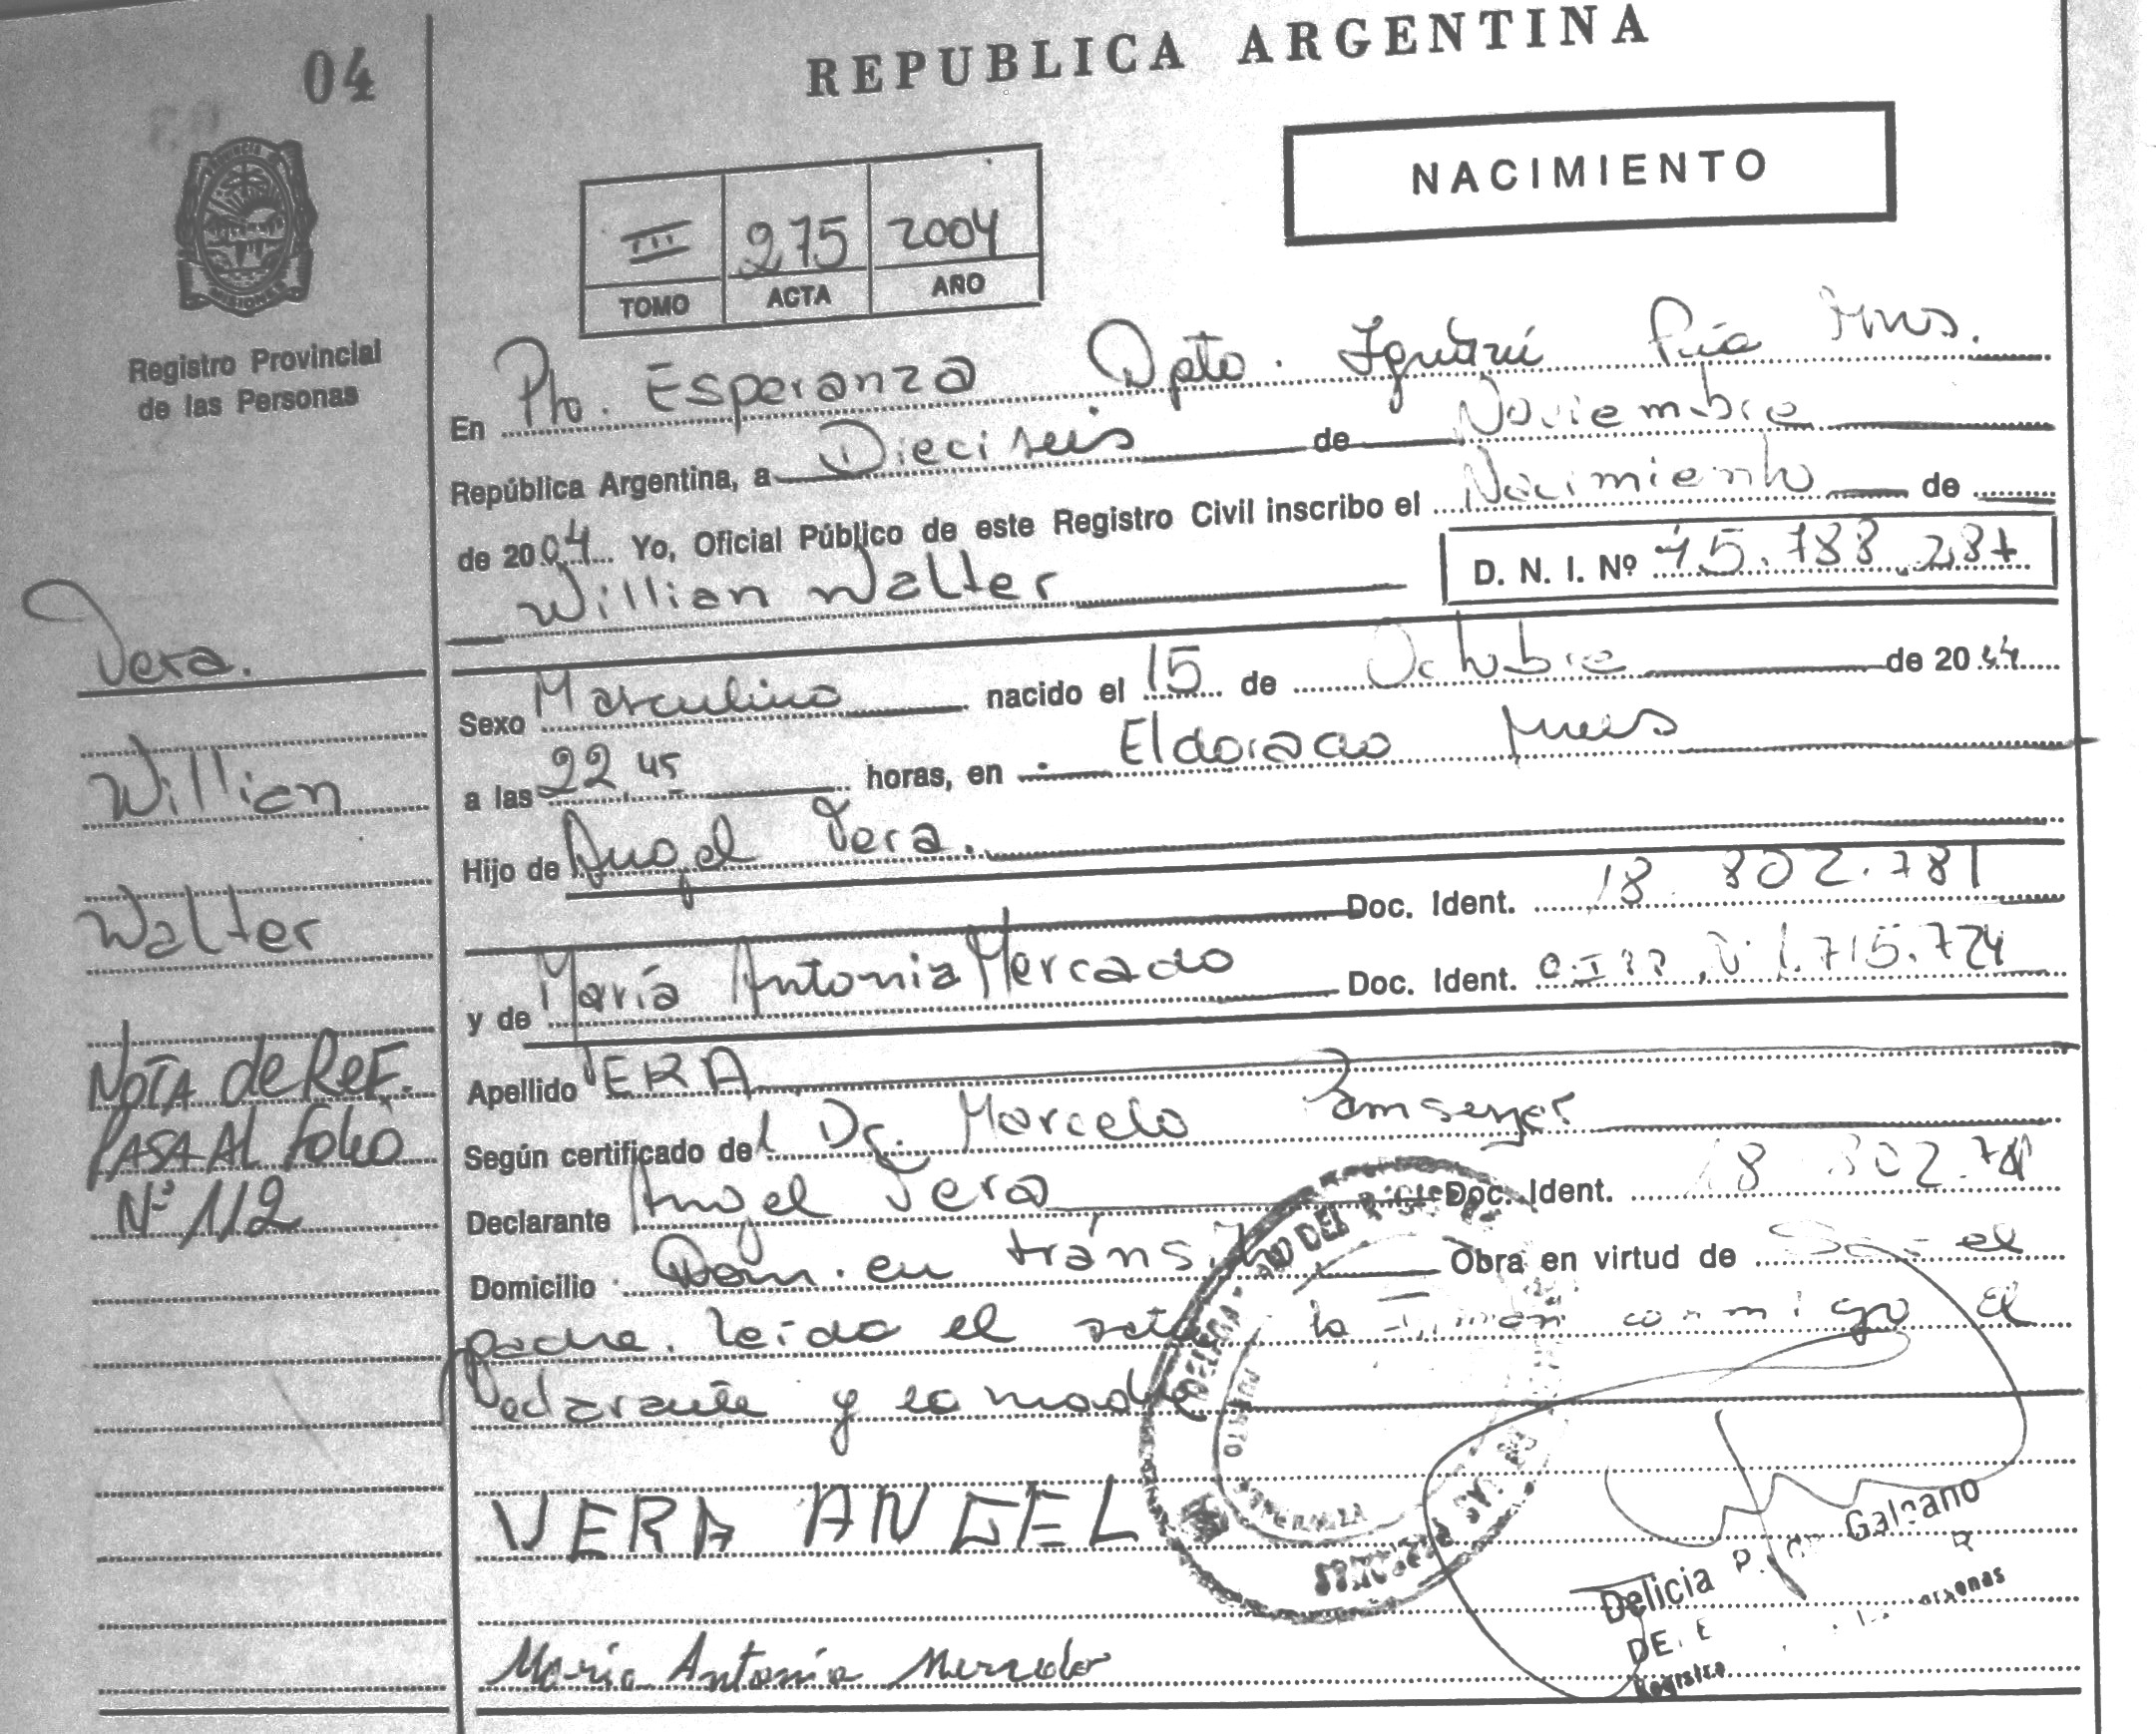 04
REPUBLICA ARGENTINA
NACIMIENTO
III 275 2004
TOMO ACTA AÑO
Registro Provincial
de las Personas
En Pto. Esperanza Dpto. Iguazú Pcia Mnes.
República Argentina, a Dieciseis de Noviembre
de 2004 Yo, Oficial Público de este Registro Civil inscribo el Nacimiento de
Willian Walter
D. N. I. Nº 45.788.287
Sexo Masculino nacido el 15 de Octubre de 2004
a las 22,45 horas, en Eldorado Mnes
Hijo de Angel Vera.
Doc. Ident. 18.802.781
y de María Antonia Mercado Doc. Ident. Nº 1.715.724
Apellido VERA
Según certificado del Dr. Marcelo
Declarante Angel Vera Doc. Ident. 18.802.781
Domicilio Dom. en tránsito Obra en virtud de Ser el
padre. Leída el acta la Firman conmigo el
declarante y la madre
VERA ANGEL
Maria Antonia Mercado
Vera.
Willian
Walter
NOTA de REF.
PASA AL FOLIO
Nº 112
PUERTO
ESPERANZA
Delicia Galeano
Registro